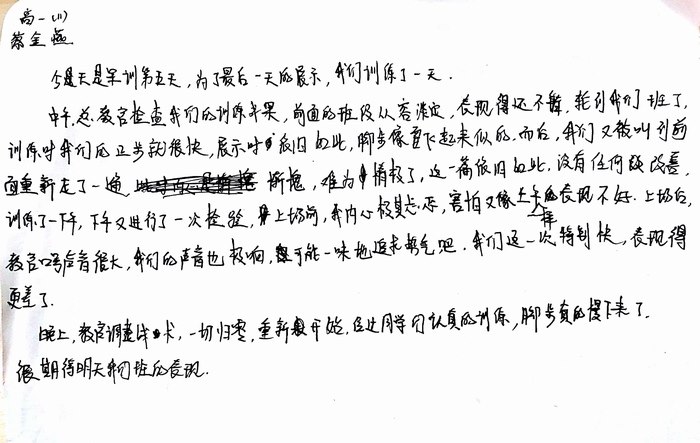 高一(11)
蔡全燕
今天是军训第五天,为了最后一天的展示,我们训练了一天.
中午,总教官检查我们的训练成果,前面的班级从容淡定,表现得还不错,轮到我们班了,
训练时我们的正步就很快,展示时依旧如此,脚步像要飞起来似的.而后,我们又被叫到前
面重新走了一遍,惭愧,难为情极了,这一篇依旧如此,没有任何改善,
训练了一下午,下午又进行了一次检验,上场前,我内心极其忐忑,害怕又像上午一样的表现不好.上场后,
教官口号声音很大,我们的声音也极响,可能一味地追求勇气吧.我们这一次特别快,表现得
更差了.
晚上,教官调整战术,一切归零,重新开始,经过同学们认真的训练,脚步真的慢下来了.
很期待明天我们班的表现.